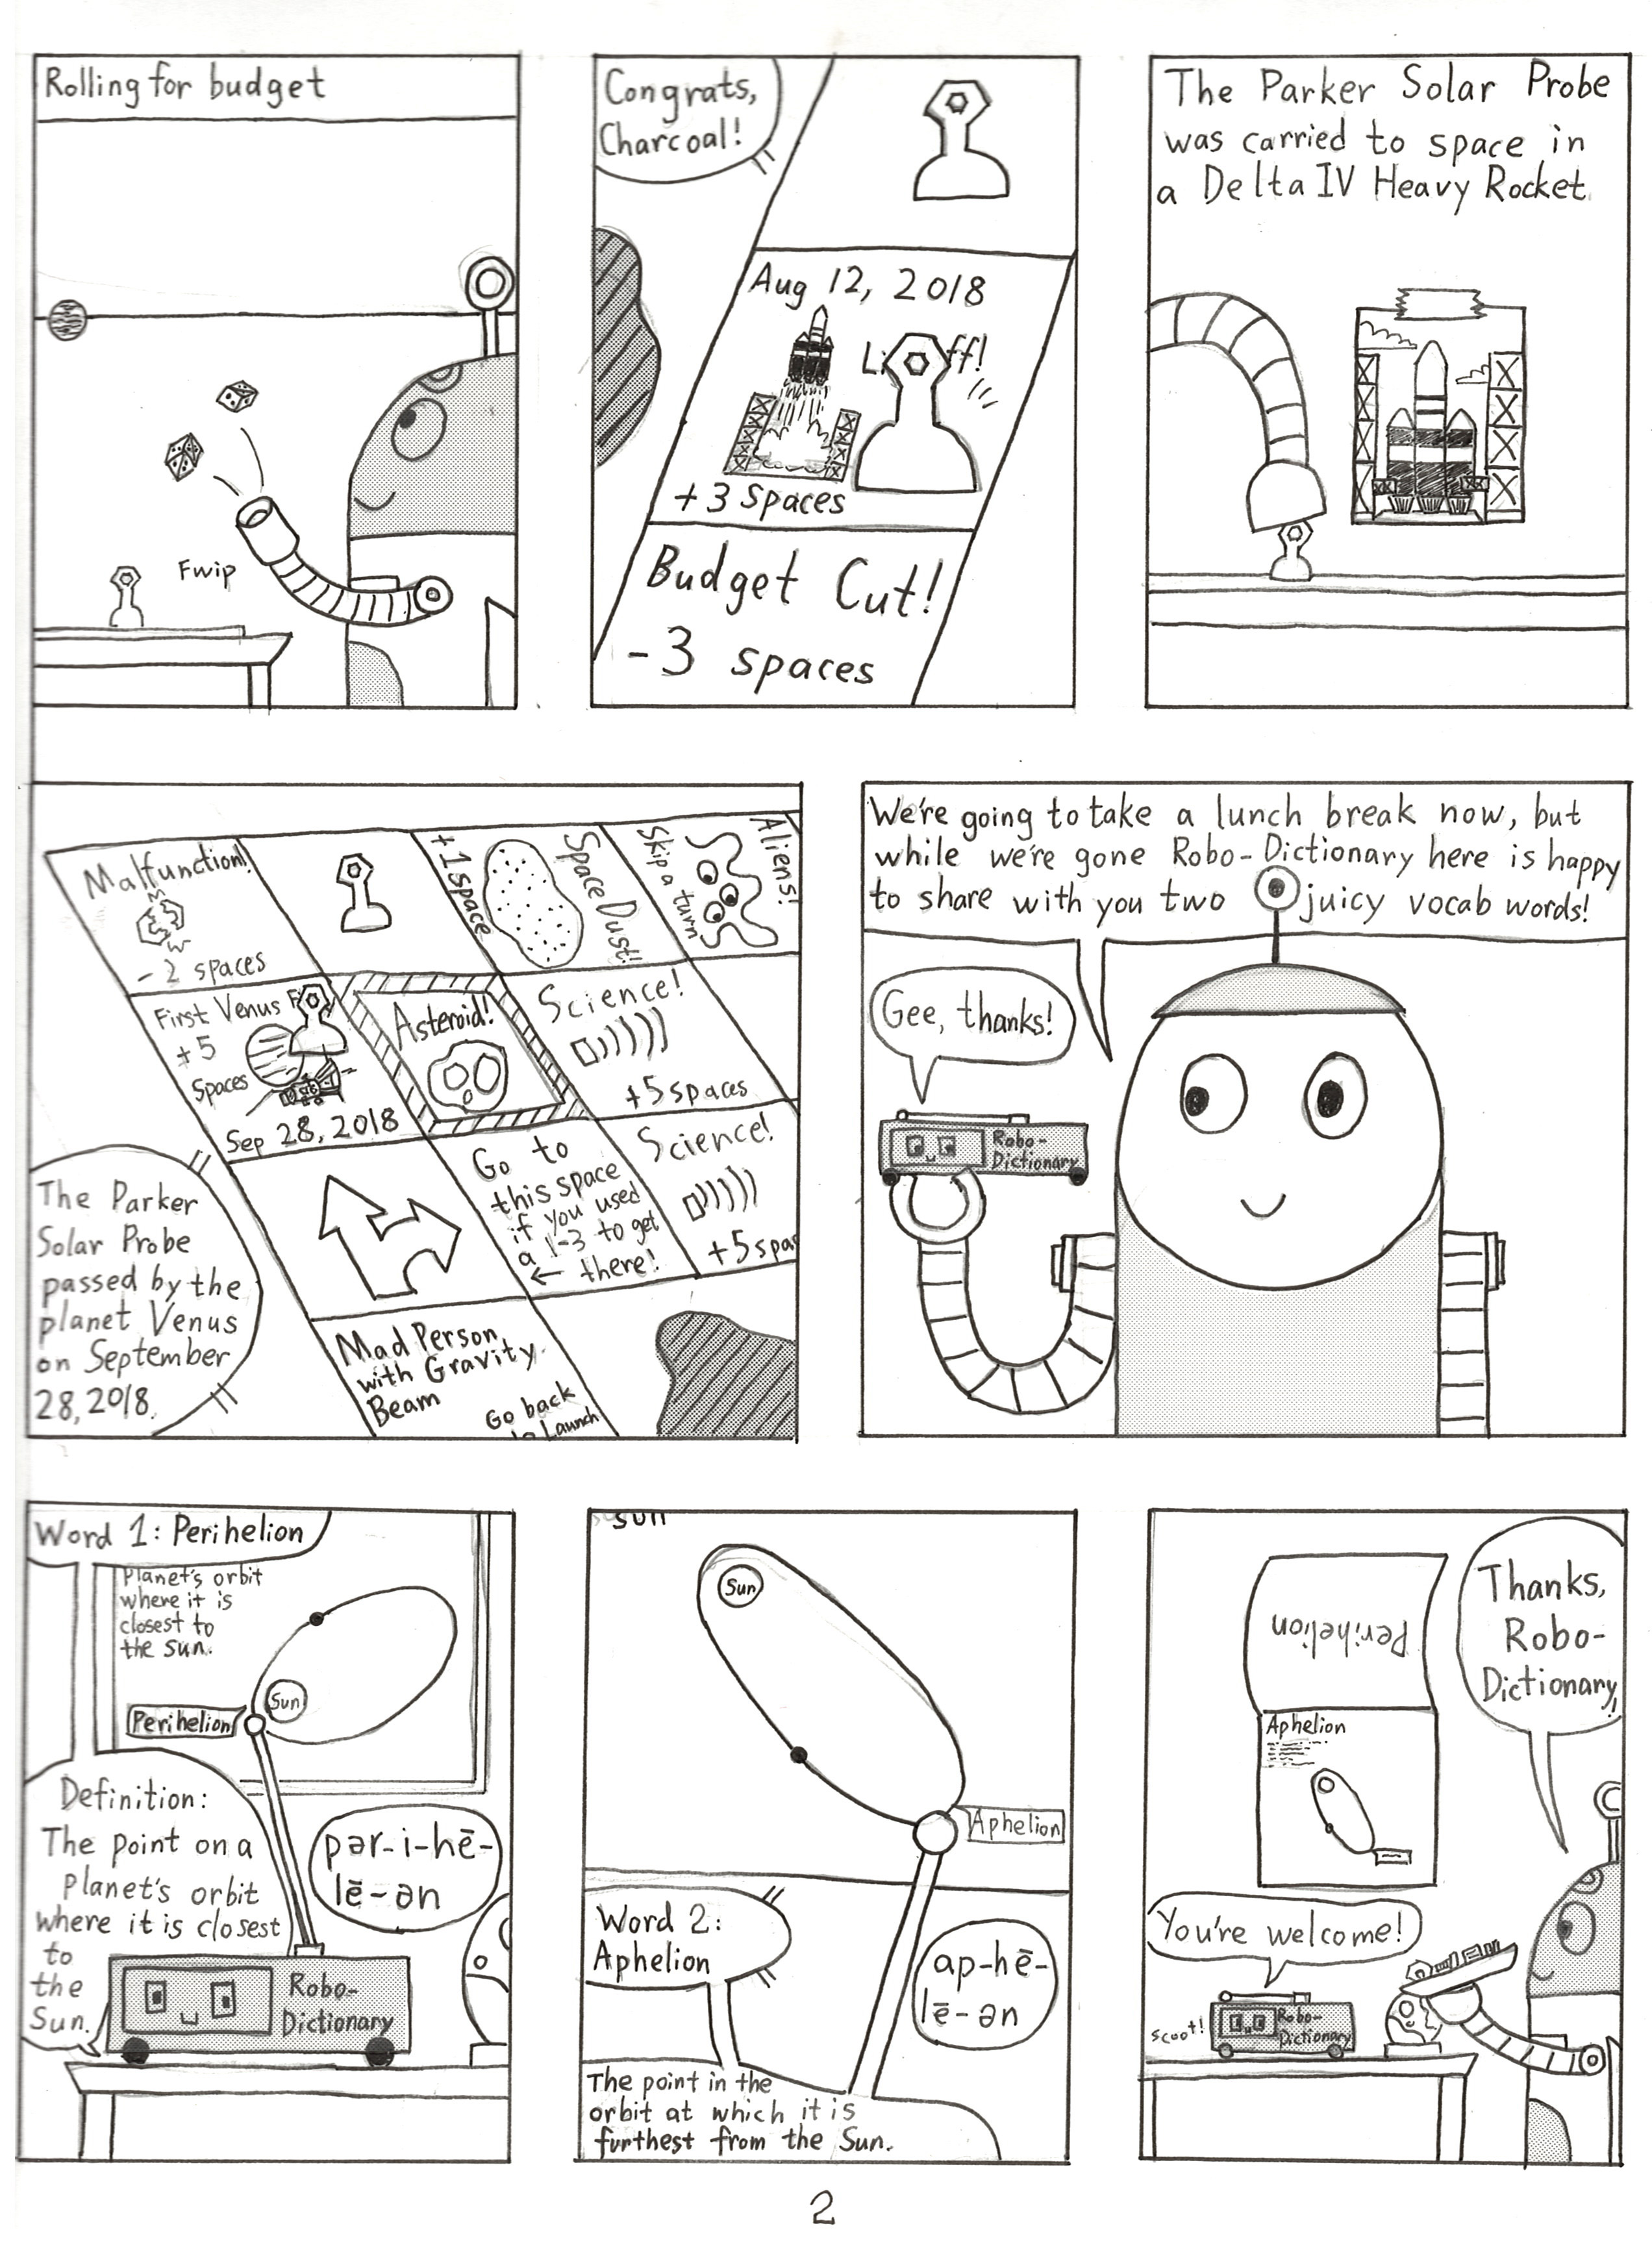 Rolling for budget
Fwip
Congrats,
Charcoal!
Aug 12, 2018
+3 spaces
Budget Cut!
-3 spaces
The Parker Solar Probe
was carried to space in
a Delta IV Heavy Rocket.
Malfunction!
-2 spaces
+1 space
Space Dust!
Skip a turn
Aliens!
First Venus
+5
Spaces
Sep 28, 2018
Asteroid!
Science!
+5 spaces
Go to
this space
if you used
a 1-3 to get
← there!
Science!
+5 spa
Mad Person
with Gravity
Beam
Go back
to Launch
The Parker
Solar Probe
passed by the
planet Venus
on September
28, 2018.
We're going to take a lunch break now, but
while we're gone Robo-Dictionary here is happy
to share with you two juicy vocab words!
Gee, thanks!
Robo-
Dictionary
Word 1: Perihelion
Planet's orbit
where it is
closest to
the sun.
Sun
Perihelion
Definition:
The point on a
Planet's orbit
where it is closest
to
the
Sun.
pər-i-hē-
lē-ən
Robo-
Dictionary
sun
Sun
Aphelion
Word 2:
Aphelion
ap-hē-
lē-ən
The point in the
orbit at which it is
furthest from the Sun.
Perihelion
Aphelion
Thanks,
Robo-
Dictionary!
You're welcome!
scoot!
Robo-
Dictionary
2